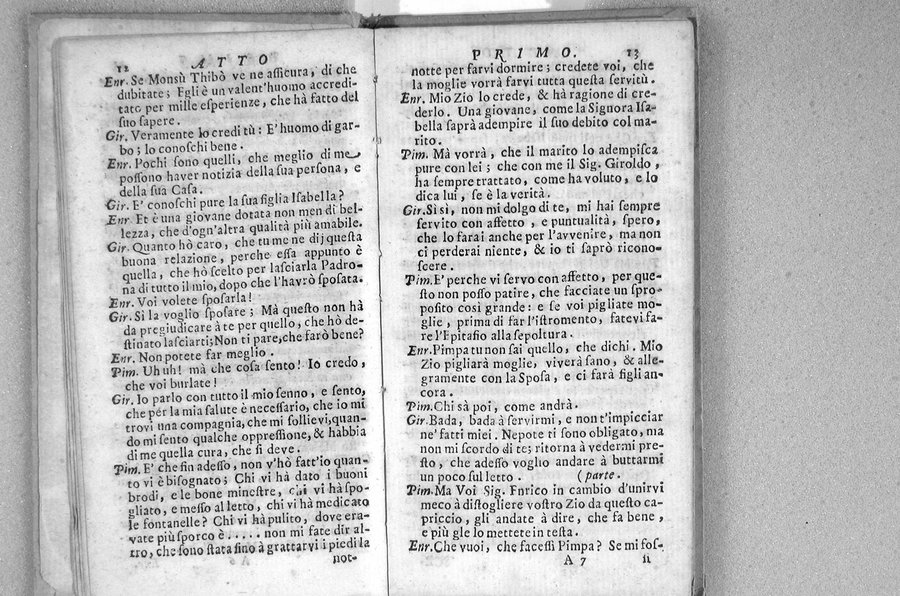 12 ATTO
Enr. Se Monsù Thibò ve ne assicura, di che
dubitate; Egli è un valent'huomo accredi-
tato per mille esperienze, che hà fatto del
suo sapere.
Gir. Veramente lo credi tù: E' huomo di gar-
bo; lo conoschi bene.
Enr. Pochi sono quelli, che meglio di me
possono haver notizia della sua persona, e
della sua Casa.
Gir. E' conoschi pure la sua figlia Isabella?
Enr. Et è una giovane dotata non men di bel-
lezza, che d'ogn'altra qualità più amabile.
Gir. Quanto hò caro, che tu me ne dij questa
buona relazione, perche essa appunto è
quella, che hò scelto per lasciarla Padro-
na di tutto il mio, dopo che l'havrò sposata.
Enr. Voi volete sposarla!
Gir. Sì la voglio sposare; Mà questo non hà
da pregiudicare à te per quello, che hò de-
stinato lasciarti; Non ti pare, che farò bene?
Enr. Non potete far meglio.
Pim. Uh uh! mà che cosa sento! Io credo,
che voi burlate!
Gir. Io parlo con tutto il mio senno, e sento,
che per la mia salute è necessario, che io mi
trovi una compagnia, che mi sollievi, quan-
do mi sento qualche oppressione, & habbia
di me quella cura, che si deve.
Pim. E' che fin adesso, non v'hò fatt'io quan-
to vi è bisognato; Chi vi hà dato i buoni
brodi, e le bone minestre, chi vi hà spo-
gliato, e messo al letto, chi vi hà medicato
le fontanelle? Chi vi hà pulito, dove era-
vate più sporco è ..... non mi fate dir al-
tro, che sono stata sino à grattarvi i piedi la
not-
PRIMO. 13
notte per farvi dormire; credete voi, che
la moglie vorrà farvi tutta questa servitù.
Enr. Mio Zio lo crede, & hà ragione di cre-
derlo. Una giovane, come la Signora Isa-
bella saprà adempire il suo debito col ma-
rito.
Pim. Mà vorrà, che il marito lo adempisca
pure con lei; che con me il Sig. Giroldo,
ha sempre trattato, come ha voluto, e lo
dica lui, se è la verità.
Gir. Sì sì, non mi dolgo di te, mi hai sempre
servito con affetto, e puntualità, spero,
che lo farai anche per l'avvenire, ma non
ci perderai niente, & io ti saprò ricono-
scere.
Pim. E' perche vi servo con affetto, per que-
sto non posso patire, che facciate un spro-
posito così grande: e se voi pigliate mo-
glie, prima di far l'istromento, fatevi fa-
re l'Epitafio alla sepoltura.
Enr. Pimpa tu non sai quello, che dichi. Mio
Zio pigliarà moglie, viverà sano, & alle-
gramente con la Sposa, e ci farà figli an-
cora.
Pim. Chi sà poi, come andrà.
Gir. Bada, bada à servirmi, e non t'impicciar
ne' fatti miei. Nepote ti sono obligato, ma
non mi scordo di te; ritorna à vedermi pre-
sto, che adesso voglio andare à buttarmi
un poco sul letto. (parte.
Pim. Ma Voi Sig. Enrico in cambio d'unirvi
meco à distogliere vostro Zio da questo ca-
priccio, gli andate à dire, che fa bene,
e più gle lo mettete in testa.
Enr. Che vuoi, che facessi Pimpa? Se mi fos-
A 7 si